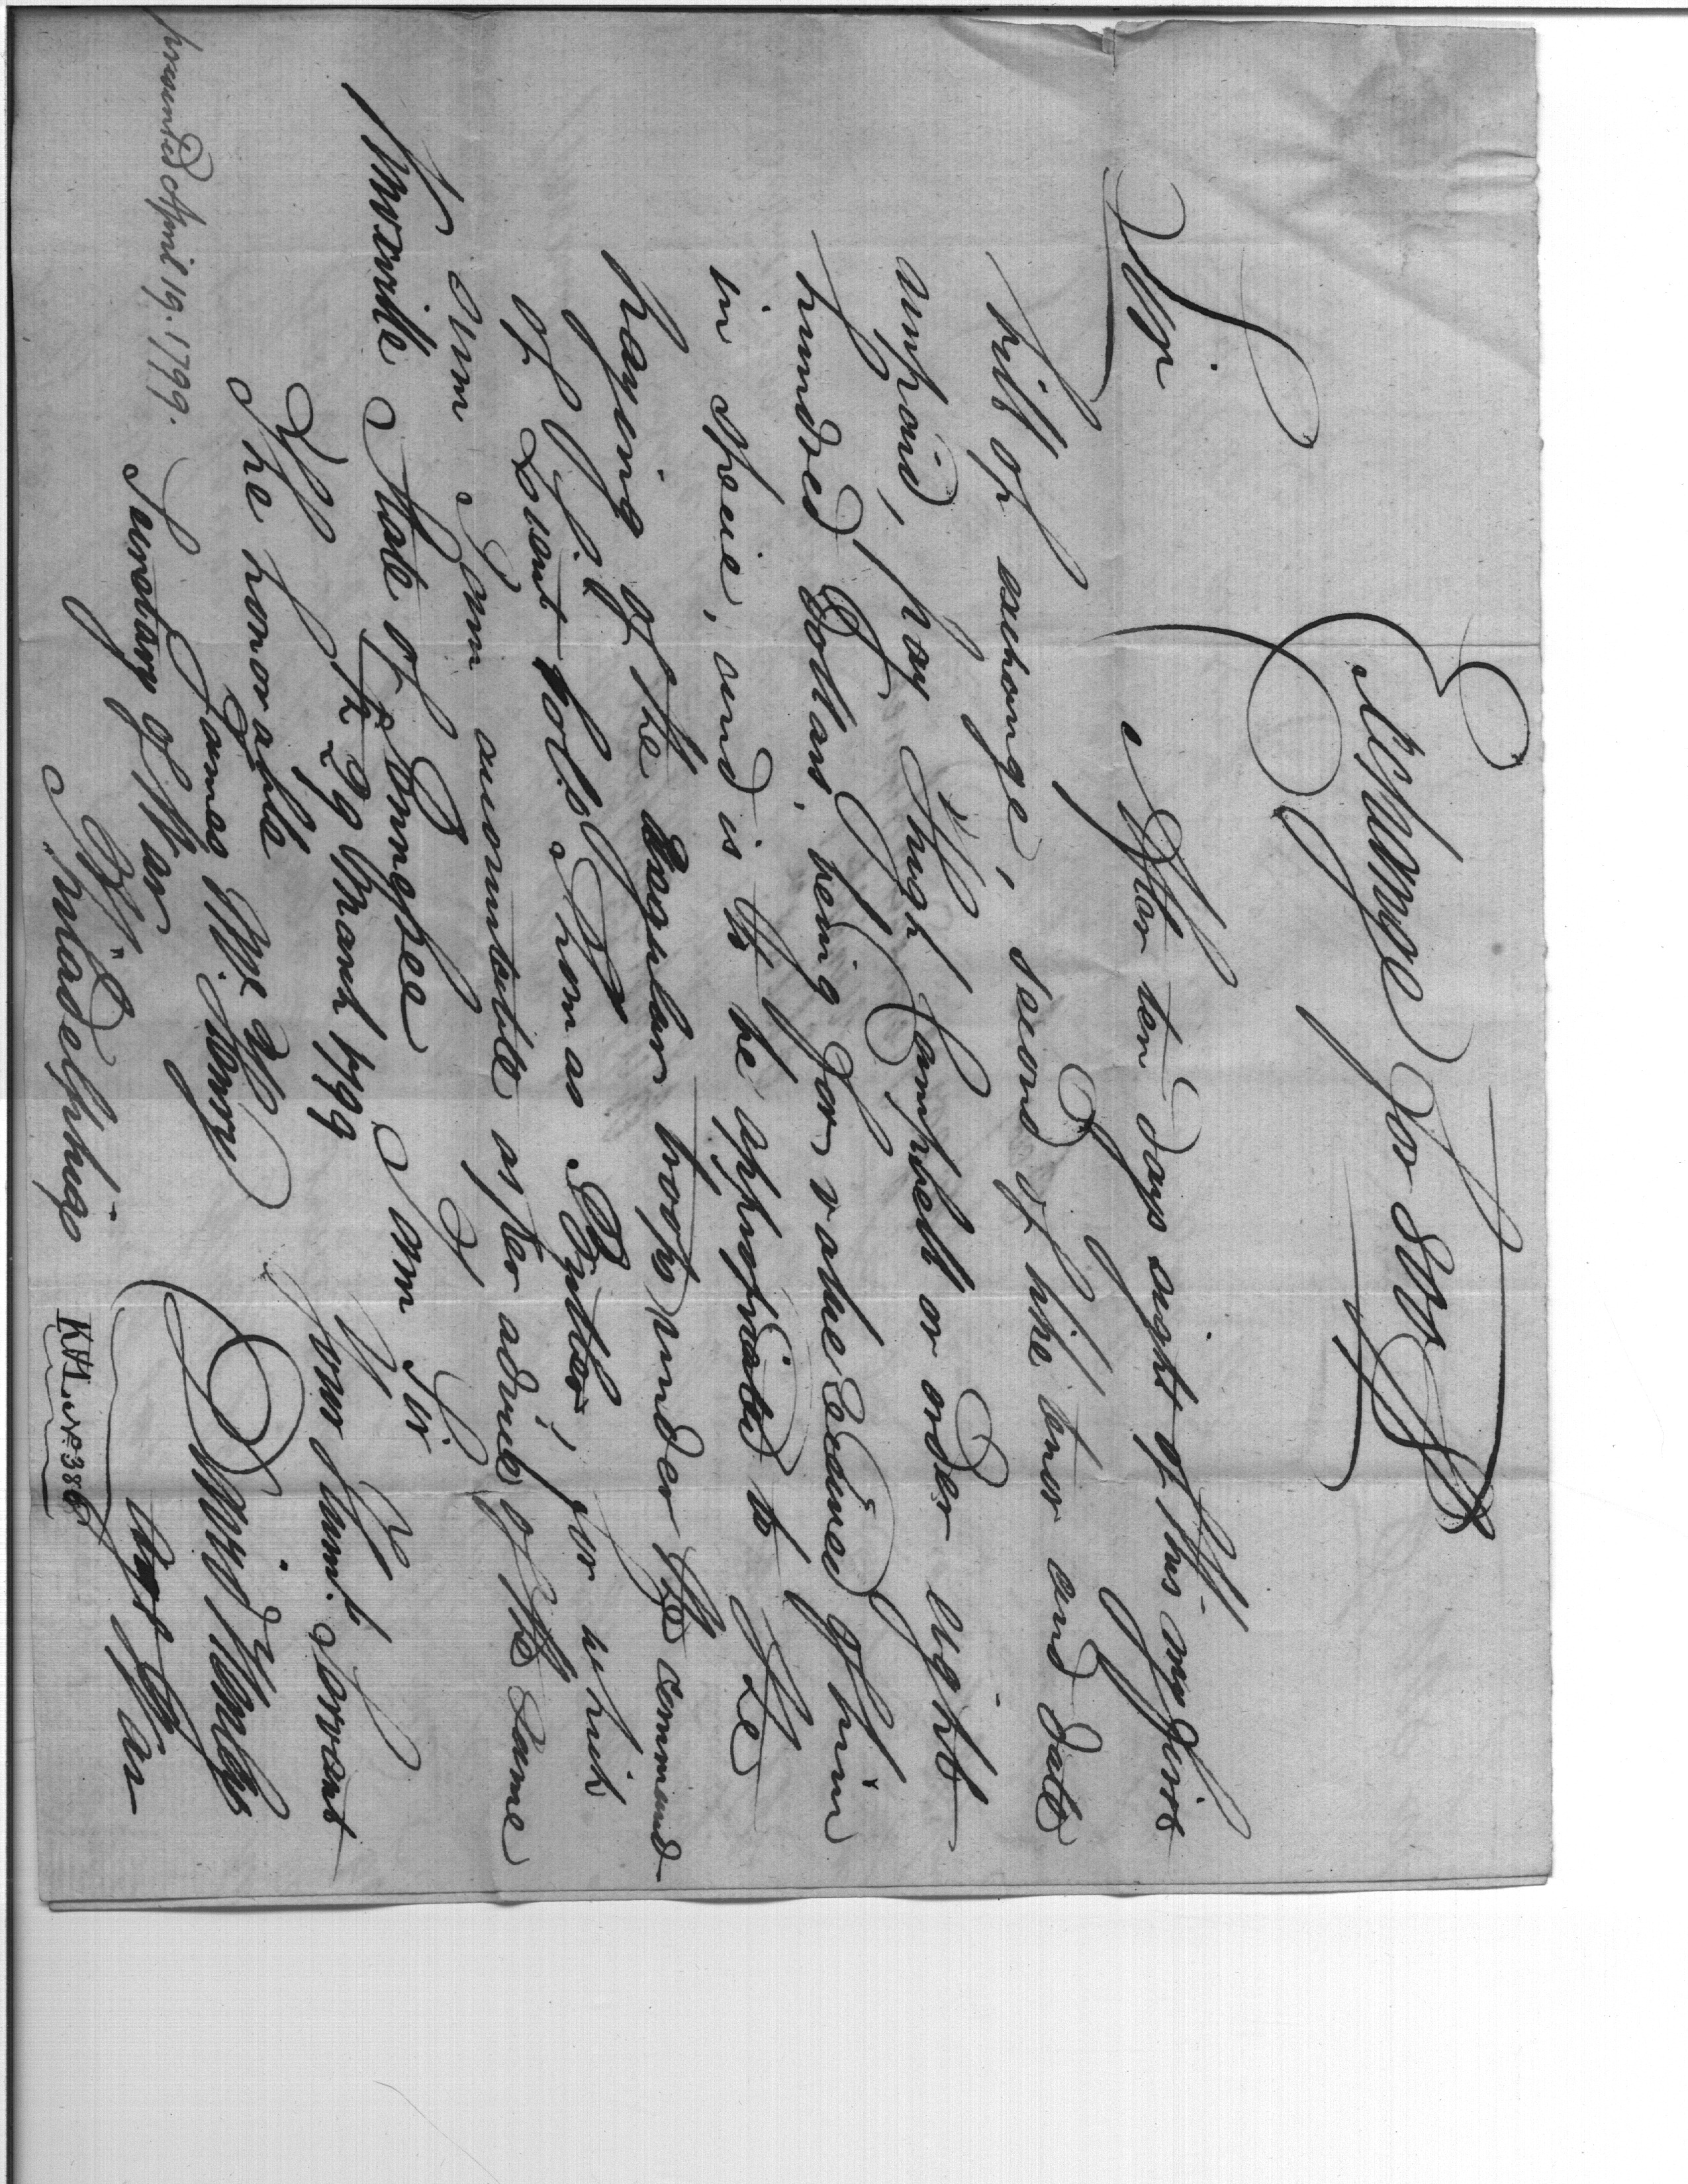 Exchange for 800 D
Sir
After ten days sight of this my first
bill of exchange, second of like tenor and date
unpaid, pay Hugh Campbell or order eight
hundred Dollars, being for value Received of him
in specie, and is to be appropriated to the
paying of the Regular troops under the command
of Lieut. Col.o Thomas Butler, for which
sum I am accountable after advice of the same
Knoxville State of Tennessee
The 29 March 1799
I am Sir
Your Hum.l Servant
David Henley
The honorable
James McHenry
Secretary of War
Philadelphia
presented April 19. 1799.